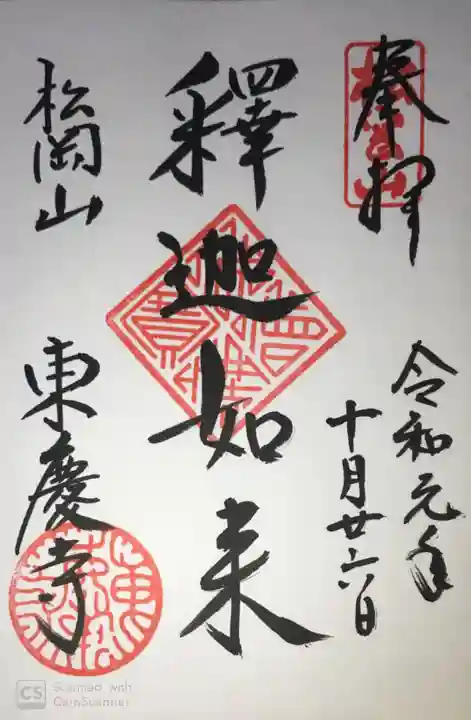 奉拜
令和元年
十月廿六日
釋迦如来
松岡山
東慶寺
CS Scanned with
CamScanner